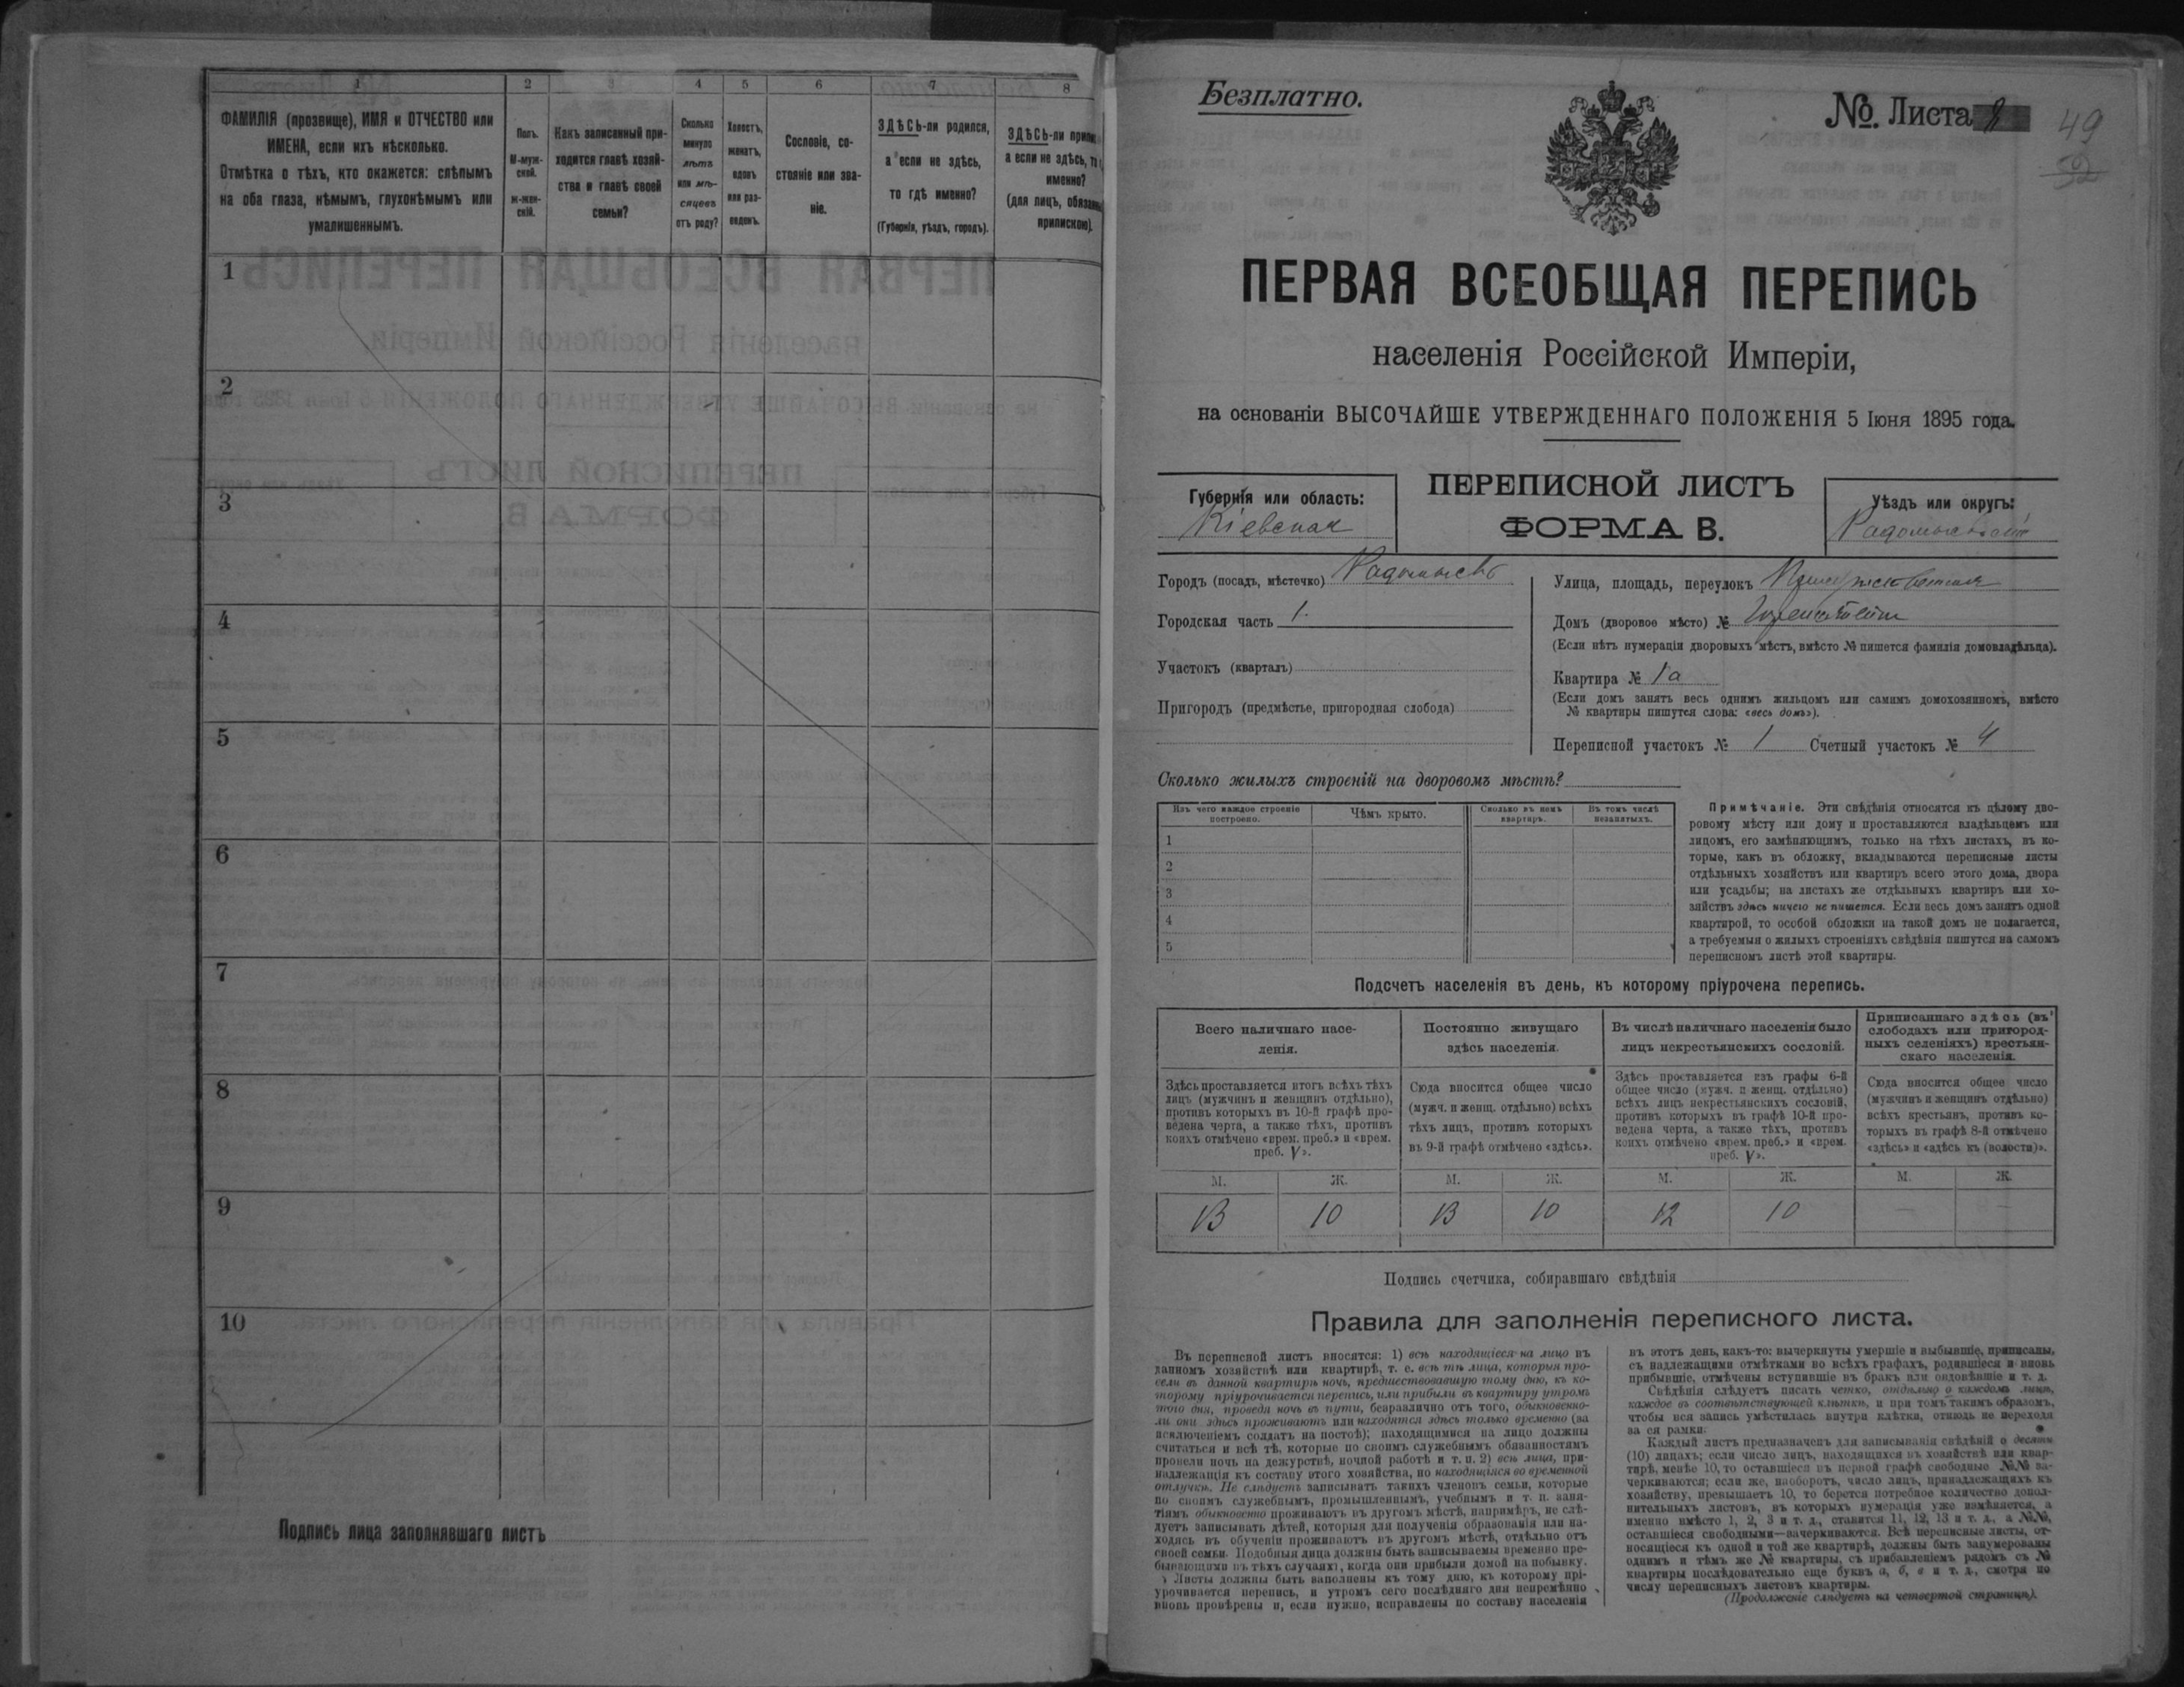 1 2 3 4 5 6 7 8
ФАМИЛІЯ (прозвище), ИМЯ и ОТЧЕСТВО или
ИМЕНА, если ихъ нѣсколько.
Отмѣтка о тѣхъ, кто окажется: слѣпымъ
на оба глаза, нѣмымъ, глухонѣмымъ или
умалишеннымъ.
Полъ.
М-муж-
ской.
ж-жен-
скій.
Какъ записанный при-
ходится главѣ хозяй-
ства и главѣ своей
семьи?
Сколько
минуло
лѣтъ
или мѣ-
сяцевъ
отъ роду?
Холостъ,
женатъ,
вдовъ
или раз-
веденъ.
Сословіе, со-
стояніе или зва-
ніе.
ЗДѢСЬ-ли родился,
а если не здѣсь,
то гдѣ именно?
(Губернія, уѣздъ, городъ).
ЗДѢСЬ-ли
а если не здѣсь,
именно?
(для лицъ,
припискою).
1
2
3
4
5
6
7
8
9
10
Подпись лица заполнявшаго листъ
Безплатно.
№. Листа
49
ПЕРВАЯ ВСЕОБЩАЯ ПЕРЕПИСЬ
населенія Россійской Имперіи,
на основаніи ВЫСОЧАЙШЕ УТВЕРЖДЕННАГО ПОЛОЖЕНІЯ 5 Іюня 1895 года.
Губернія или область:
Кіевская
ПЕРЕПИСНОЙ ЛИСТЪ
ФОРМА В.
Уѣздъ или округъ:
Городъ (посадъ, мѣстечко) Радомысль
Городская часть 1.
Участокъ (кварталъ)
Пригородъ (предмѣстье, пригородная слобода)
Улица, площадь, переулокъ
Домъ (дворовое мѣсто) №
(Если нѣтъ нумераціи дворовыхъ мѣстъ, вмѣсто № пишется фамилія домовладѣльца).
Квартира № 1а
(Если домъ занятъ весь однимъ жильцомъ или самимъ домохозяиномъ, вмѣсто
№ квартиры пишутся слова: «весь домъ»).
Переписной участокъ № 1 Счетный участокъ № 4
Сколько жилыхъ строеній на дворовомъ мѣстѣ?
Изъ чего каждое строеніе
построено.
Чѣмъ крыто.
Сколько въ немъ
квартиръ.
Въ томъ числѣ
незанятыхъ.
1
2
3
4
5
Примѣчаніе. Эти свѣдѣнія относятся къ цѣлому дво-
ровому мѣсту или дому и проставляются владѣльцемъ или
лицомъ, его замѣняющимъ, только на тѣхъ листахъ, въ ко-
торые, какъ въ обложку, вкладываются переписные листы
отдѣльныхъ хозяйствъ или квартиръ всего этого дома, двора
или усадьбы; на листахъ же отдѣльныхъ квартиръ или хо-
зяйствъ здѣсь ничего не пишется. Если весь домъ занятъ одной
квартирой, то особой обложки на такой домъ не полагается,
а требуемыя о жилыхъ строеніяхъ свѣдѣнія пишутся на самомъ
переписномъ листѣ этой квартиры.
Подсчетъ населенія въ день, къ которому пріурочена перепись.
Всего наличнаго насе-
ленія.
Постоянно живущаго
здѣсь населенія.
Въ числѣ наличнаго населенія было
лицъ некрестьянскихъ сословій.
Приписаннаго здѣсь (въ
слободахъ или пригород-
ныхъ селеніяхъ) крестьян-
скаго населенія.
Здѣсь проставляется итогъ всѣхъ тѣхъ
лицъ (мужчинъ и женщинъ отдѣльно),
противъ которыхъ въ 10-й графѣ про-
ведена черта, а также тѣхъ, противъ
коихъ отмѣчено «врем. преб.» и «врем.
преб. V».
Сюда вносится общее число
(мужч. и женщ. отдѣльно) всѣхъ
тѣхъ лицъ, противъ которыхъ
въ 9-й графѣ отмѣчено «здѣсь».
Здѣсь проставляется изъ графы 6-й
общее число (мужч. и женщ. отдѣльно)
всѣхъ лицъ некрестьянскихъ сословій,
противъ которыхъ въ графѣ 10-й про-
ведена черта, а также тѣхъ, противъ
коихъ отмѣчено «врем. преб.» и «врем.
преб. V».
Сюда вносится общее число
(мужчинъ и женщинъ отдѣльно)
всѣхъ крестьянъ, противъ ко-
торыхъ въ графѣ 8-й отмѣчено
«здѣсь» и «здѣсь къ (волости)».
М. Ж. М. Ж. М. Ж. М. Ж.
13 10 13 10 12 10 — —
Подпись счетчика, собиравшаго свѣдѣнія
Правила для заполненія переписного листа.
Въ переписной листъ вносятся: 1) всѣ находящіеся на лицо въ
данномъ хозяйствѣ или квартирѣ, т. е. всѣ тѣ лица, которыя про-
вели въ данной квартирѣ ночь, предшествовавшую тому дню, къ ко-
торому пріурочивается перепись, или прибыли въ квартиру утромъ
того дня, проведя ночь въ пути, безразлично отъ того, обыкновенно-
ли они здѣсь проживаютъ или находятся здѣсь только временно (за
исключеніемъ солдатъ на постоѣ); находящимися на лицо должны
считаться и всѣ тѣ, которые по своимъ служебнымъ обязанностямъ
провели ночь на дежурствѣ, ночной работѣ и т. п. 2) всѣ лица, при-
надлежащія къ составу этого хозяйства, но находящіяся во временной
отлучкѣ. Не слѣдуетъ записывать такихъ членовъ семьи, которые
по своимъ служебнымъ, промышленнымъ, учебнымъ и т. п. заня-
тіямъ обыкновенно проживаютъ въ другомъ мѣстѣ, напримѣръ, не слѣ-
дуетъ записывать дѣтей, которыя для полученія образованія или на-
ходясь въ обученіи проживаютъ въ другомъ мѣстѣ, отдѣльно отъ
своей семьи. Подобныя лица должны быть записываемы временно пре-
бывающими въ тѣхъ случаяхъ, когда они прибыли домой на побывку.
Листы должны быть заполнены къ тому дню, къ которому прі-
урочивается перепись, и утромъ сего послѣдняго дня непремѣнно
вновь провѣрены и, если нужно, исправлены по составу населенія
въ этотъ день, какъ-то: вычеркнуты умершіе и выбывшіе, приписаны,
съ надлежащими отмѣтками во всѣхъ графахъ, родившіеся и вновь
прибывшіе, отмѣчены вступившіе въ бракъ или овдовѣвшіе и т. д.
Свѣдѣнія слѣдуетъ писать четко, отдѣльно о каждомъ лицѣ,
каждое въ соотвѣтствующей клѣткѣ, и при томъ такимъ образомъ,
чтобы вся запись умѣстилась внутри клѣтки, отнюдь не переходя
за ея рамки.
Каждый листъ предназначенъ для записыванія свѣдѣній о десяти
(10) лицахъ; если число лицъ, находящихся въ хозяйствѣ или квар-
тирѣ, менѣе 10, то оставшіеся въ первой графѣ свободные №№ за-
черкиваются; если же, наоборотъ, число лицъ, принадлежащихъ къ
хозяйству, превышаетъ 10, то берется потребное количество допол-
нительныхъ листовъ, въ которыхъ нумерація уже измѣняется, а
именно вмѣсто 1, 2, 3 и т. д., ставится 11, 12, 13 и т. д., а №№,
оставшіеся свободными—зачеркиваются. Всѣ переписные листы, от-
носящіеся къ одной и той же квартирѣ, должны быть занумерованы
однимъ и тѣмъ же № квартиры, съ прибавленіемъ рядомъ съ №
квартиры послѣдовательно еще буквъ а, б, в и т. д., смотря по
числу переписныхъ листовъ квартиры.
(Продолженіе слѣдуетъ на четвертой страницѣ).